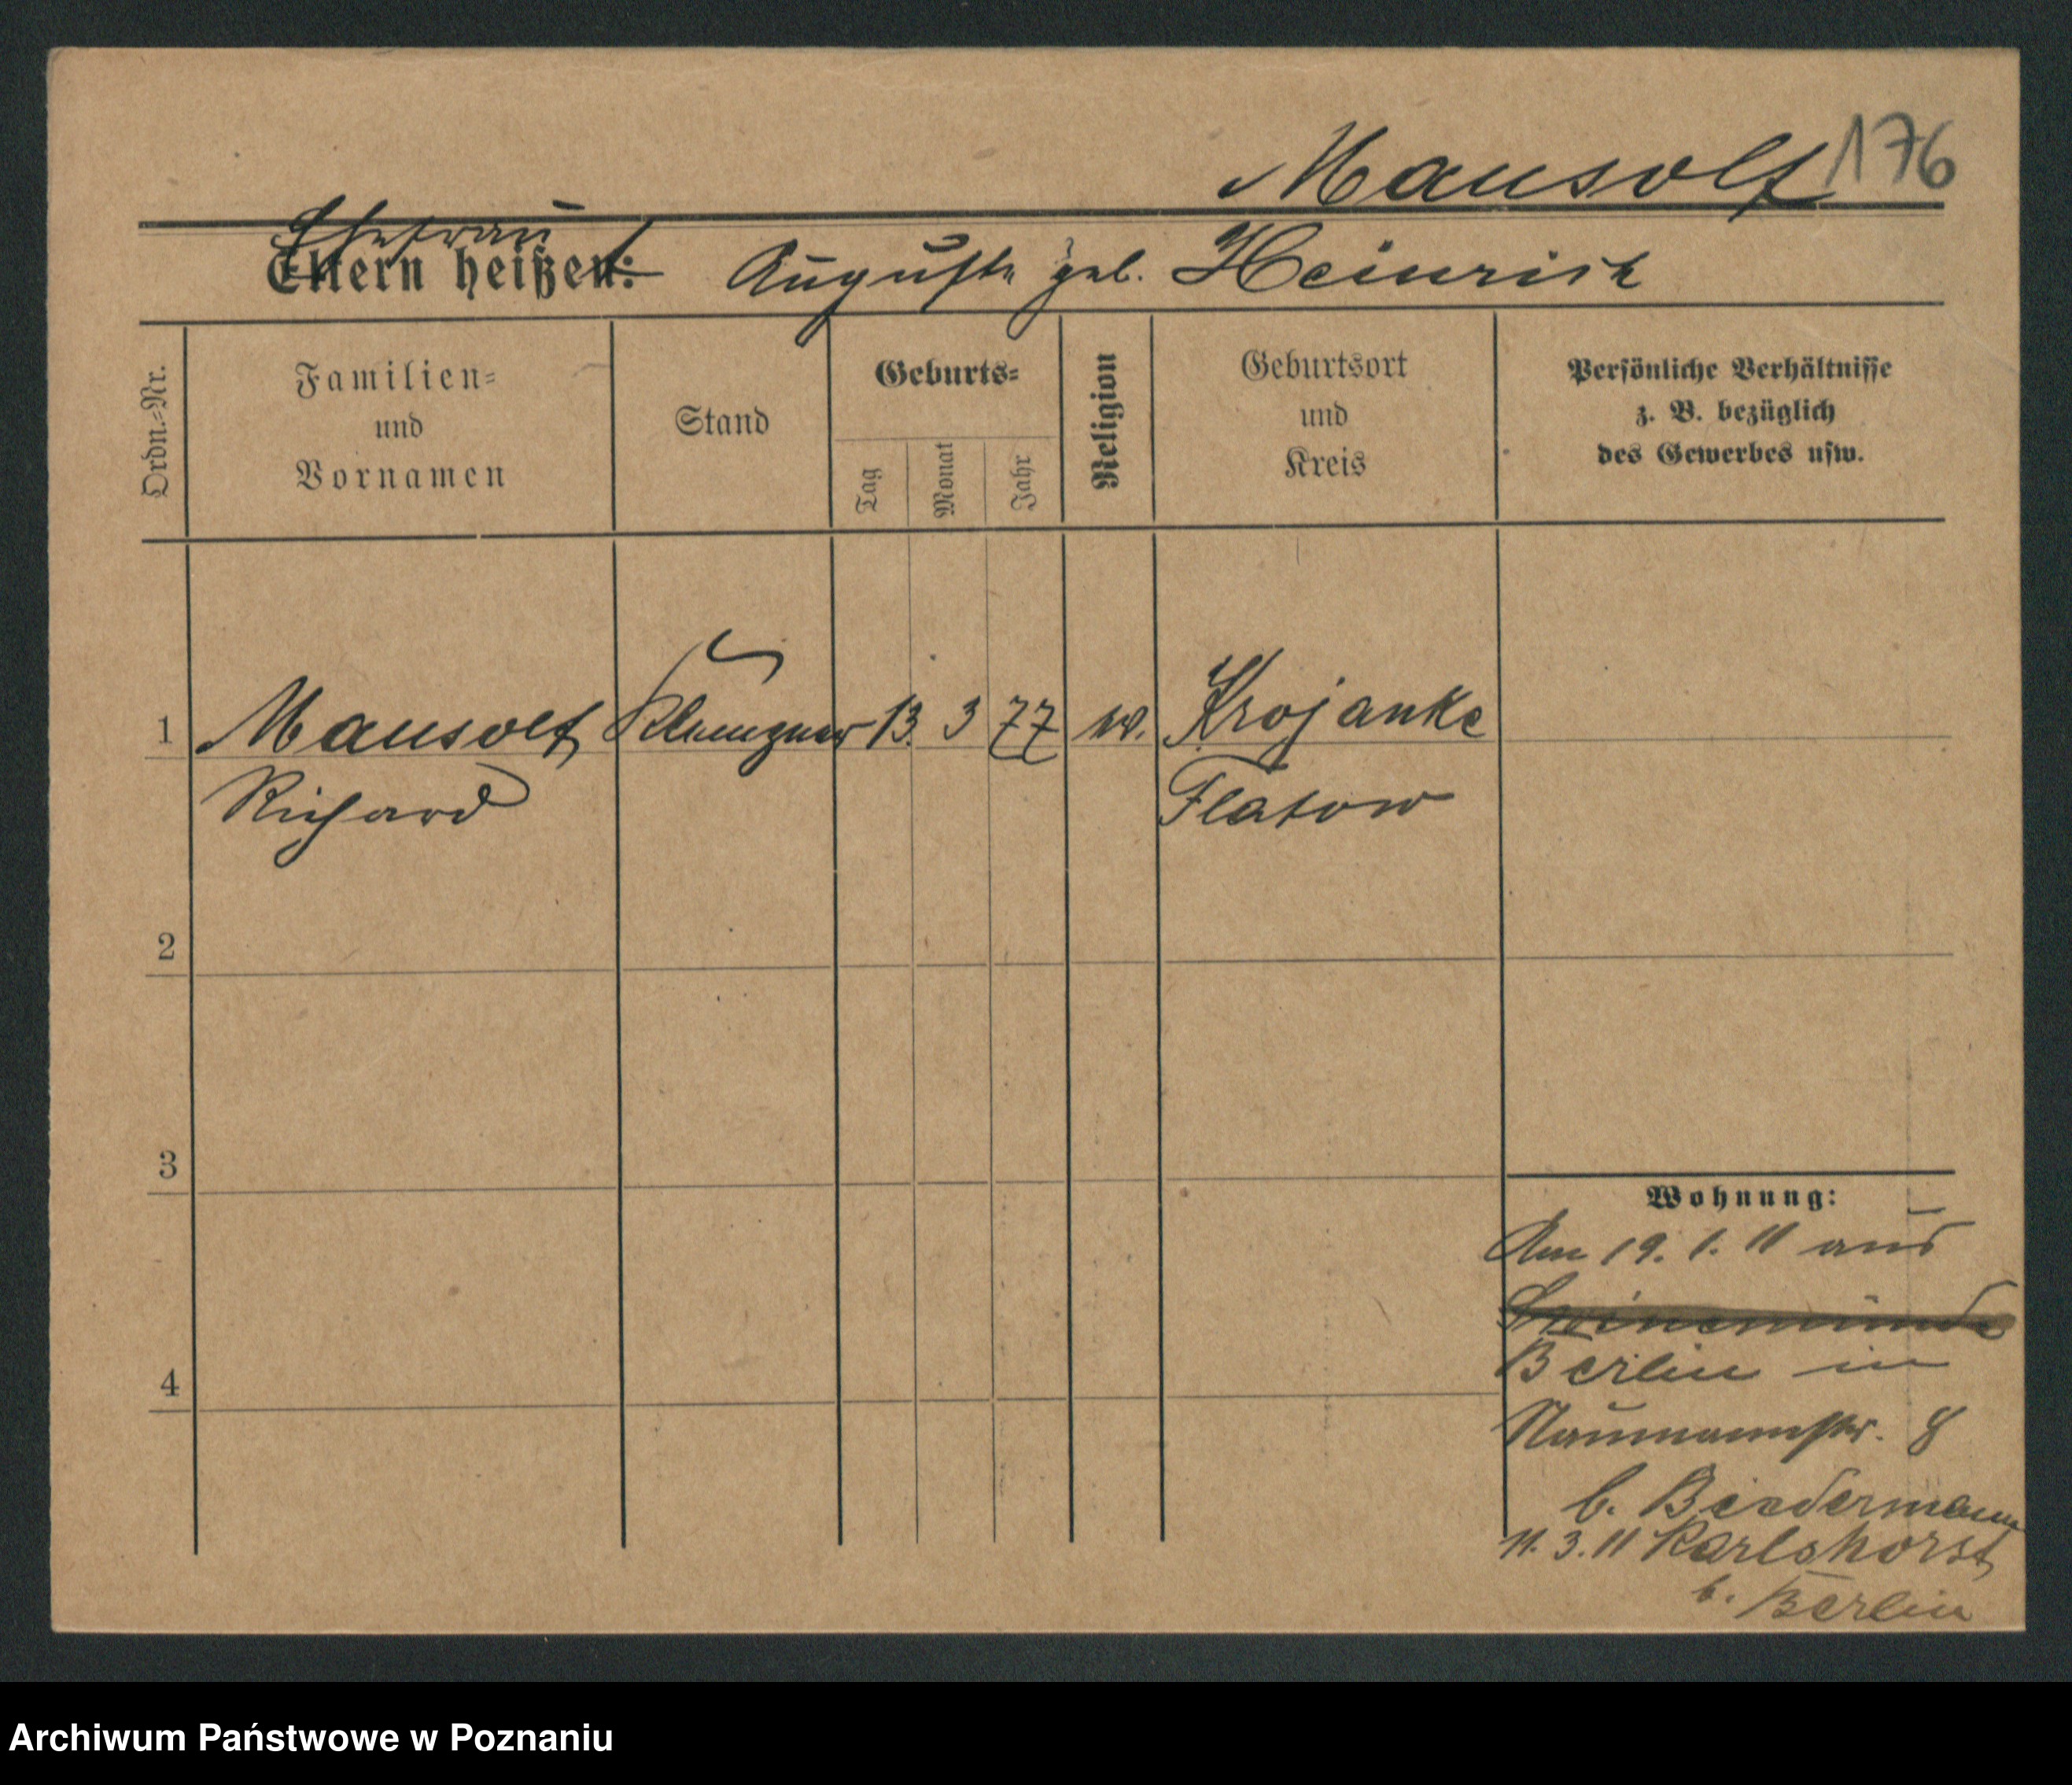 Mausolf 176
Ehefrau
Eltern heißen: Auguste geb. Heinrich
Ordn.=Nr.
Familien=
und
Vornamen
Stand
Geburts=
Tag
Monat
Jahr
Religion
Geburtsort
und
Kreis
Persönliche Verhältnisse
z. B. bezüglich
des Gewerbes usw.
1 Mausolf Klempner 13. 3 77 Krojanke
Richard Flatow
2
3
4
Wohnung:
Am 19. 1. 11 aus
Swinemünde
Berlin in
Naumannstr. 8
b. Biedermann
11. 3. 11 Karlshorst
b. Berlin
Archiwum Państwowe w Poznaniu